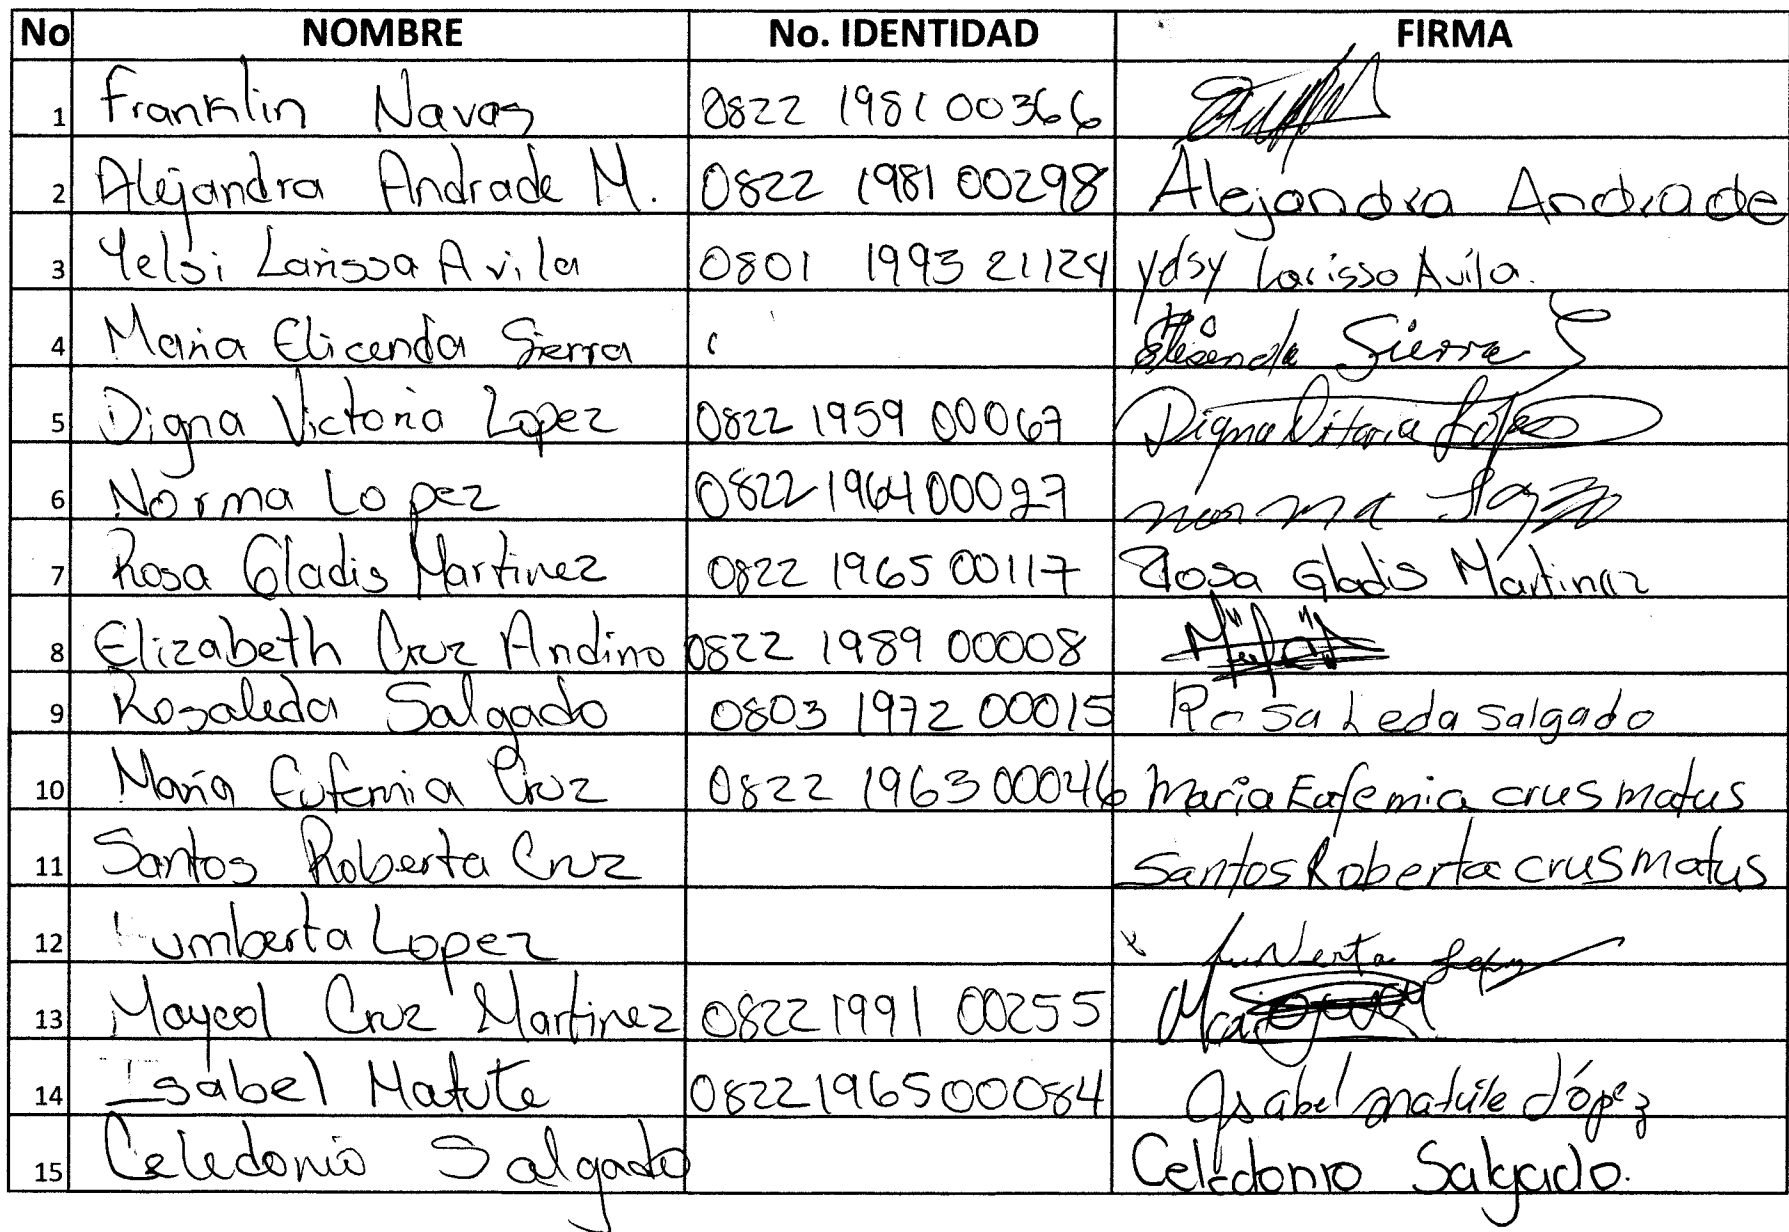 No NOMBRE No. IDENTIDAD FIRMA
1 Franklin Navas 0822 1981 00366
2 Alejandra Andrade M. 0822 1981 00298 Alejandra Andrade
3 Yelsi Larissa Avila 0801 1993 21124 ydsy Larissa Avila.
4 Maria Elicenda Sierra Elisenda Sierra
5 Digna Victoria Lopez 0822 1959 00067 Digna Vitoria López
6 Norma Lopez 0822 1964 00027 norma
7 Rosa Gladis Martinez 0822 1965 00117 Rosa Gladis Martinez
8 Elizabeth Cruz Andino 0822 1989 00008
9 Rosaleda Salgado 0803 1972 00015 Rosa Leda Salgado
10 Maria Eufemia Cruz 0822 1963 00046 Maria Eufemia crus matus
11 Santos Roberta Cruz Santos Roberta crus matus
12 umberta Lopez
13 Maycol Cruz Martinez 0822 1991 00255
14 Isabel Matute 0822 1965 00084 Isabel matute López
15 Celedonio Salgado Celedonio Salgado.